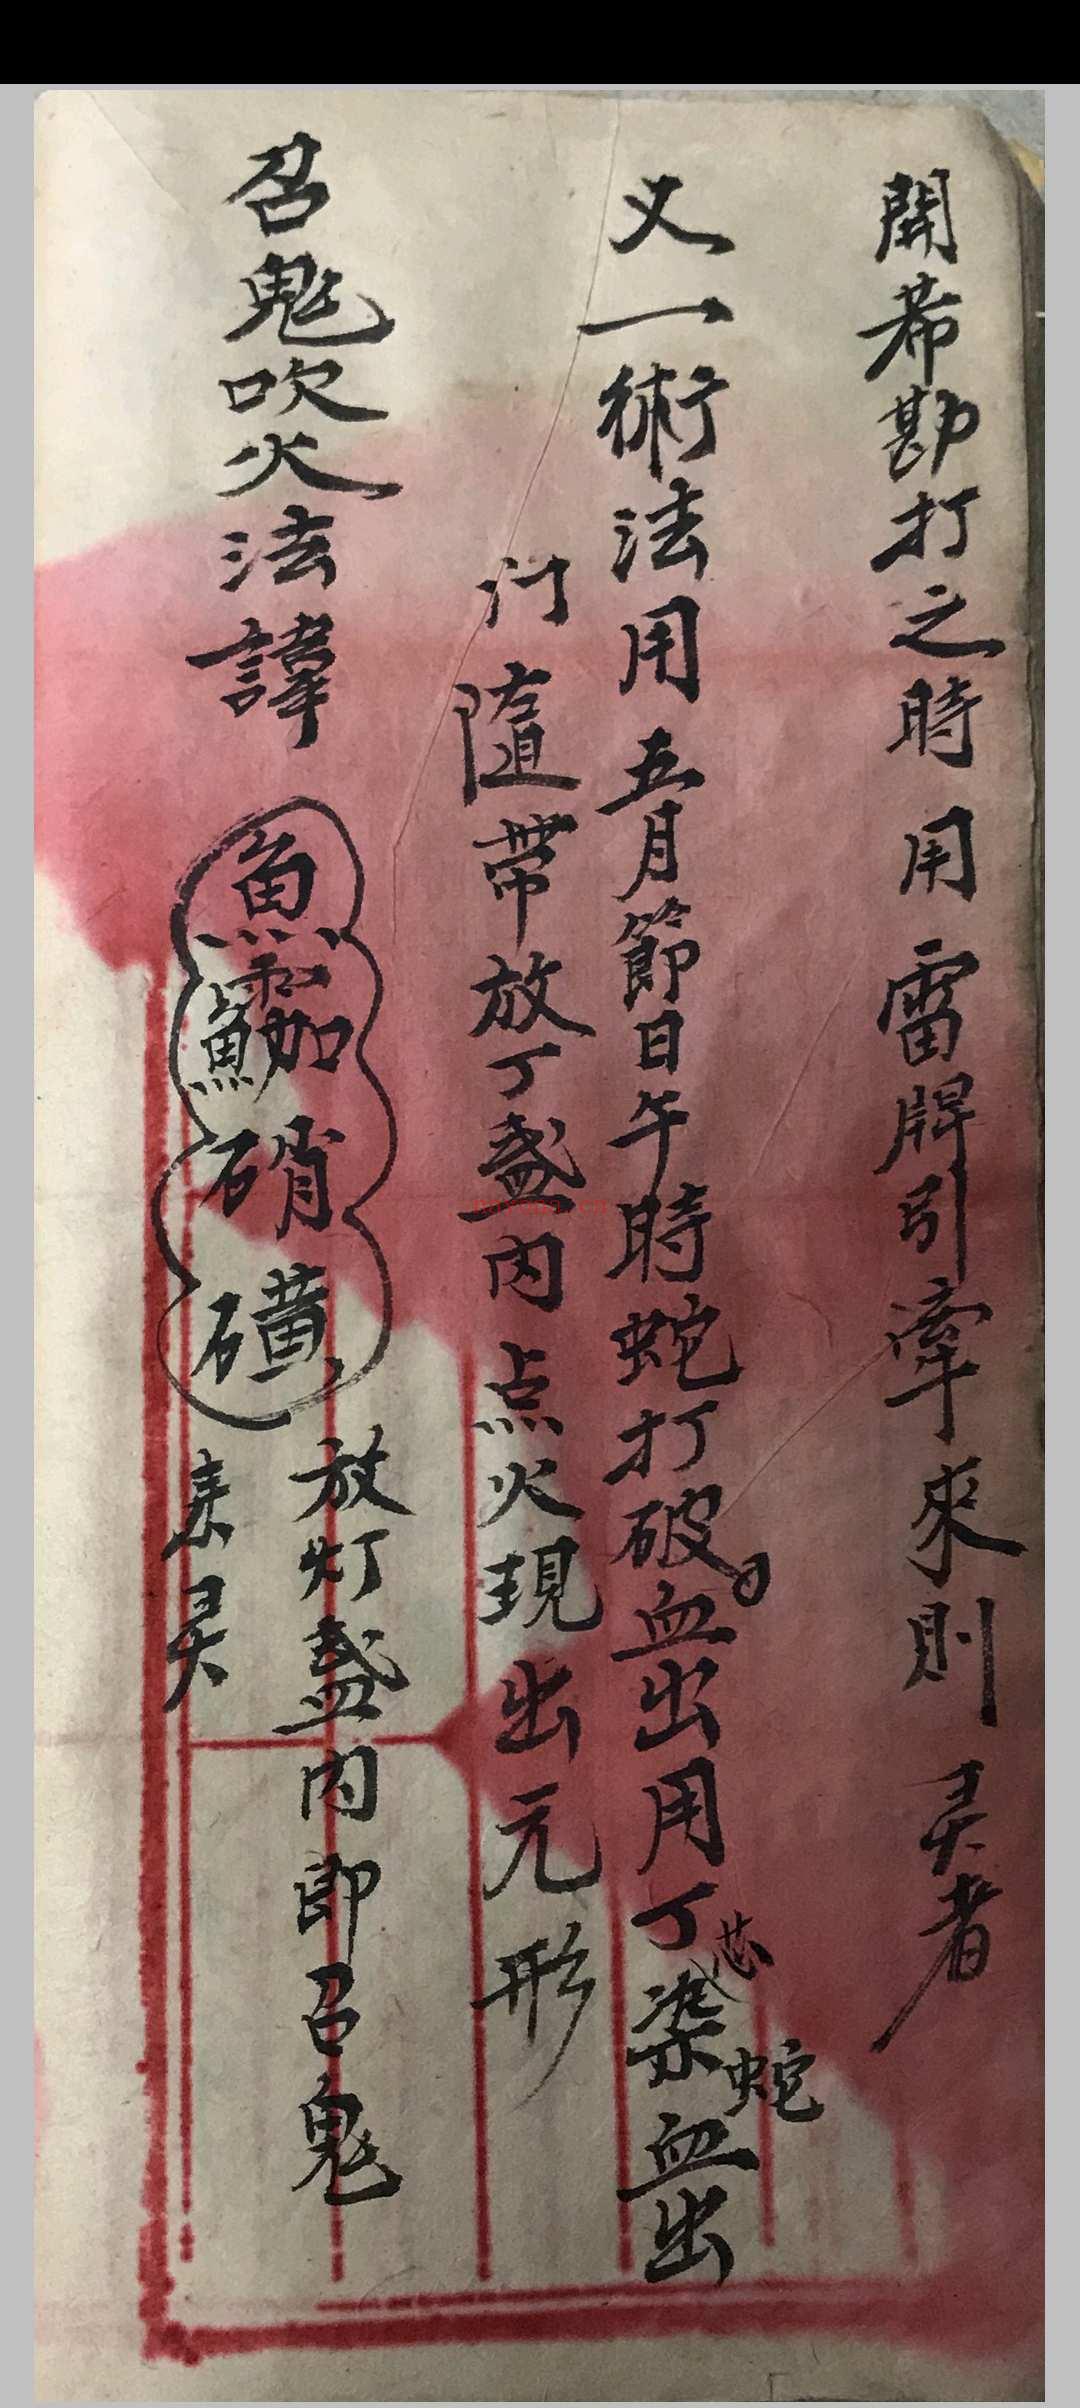 開希勘打之時用雷牌引牽來則灵者
又一術法用五月節日午時蛇打破血出用丁芯染蛇血出
汀隨帶放丁盞內点火現出元形
召鬼吹火法諱
硝磺
放灯盞內即召鬼
来灵